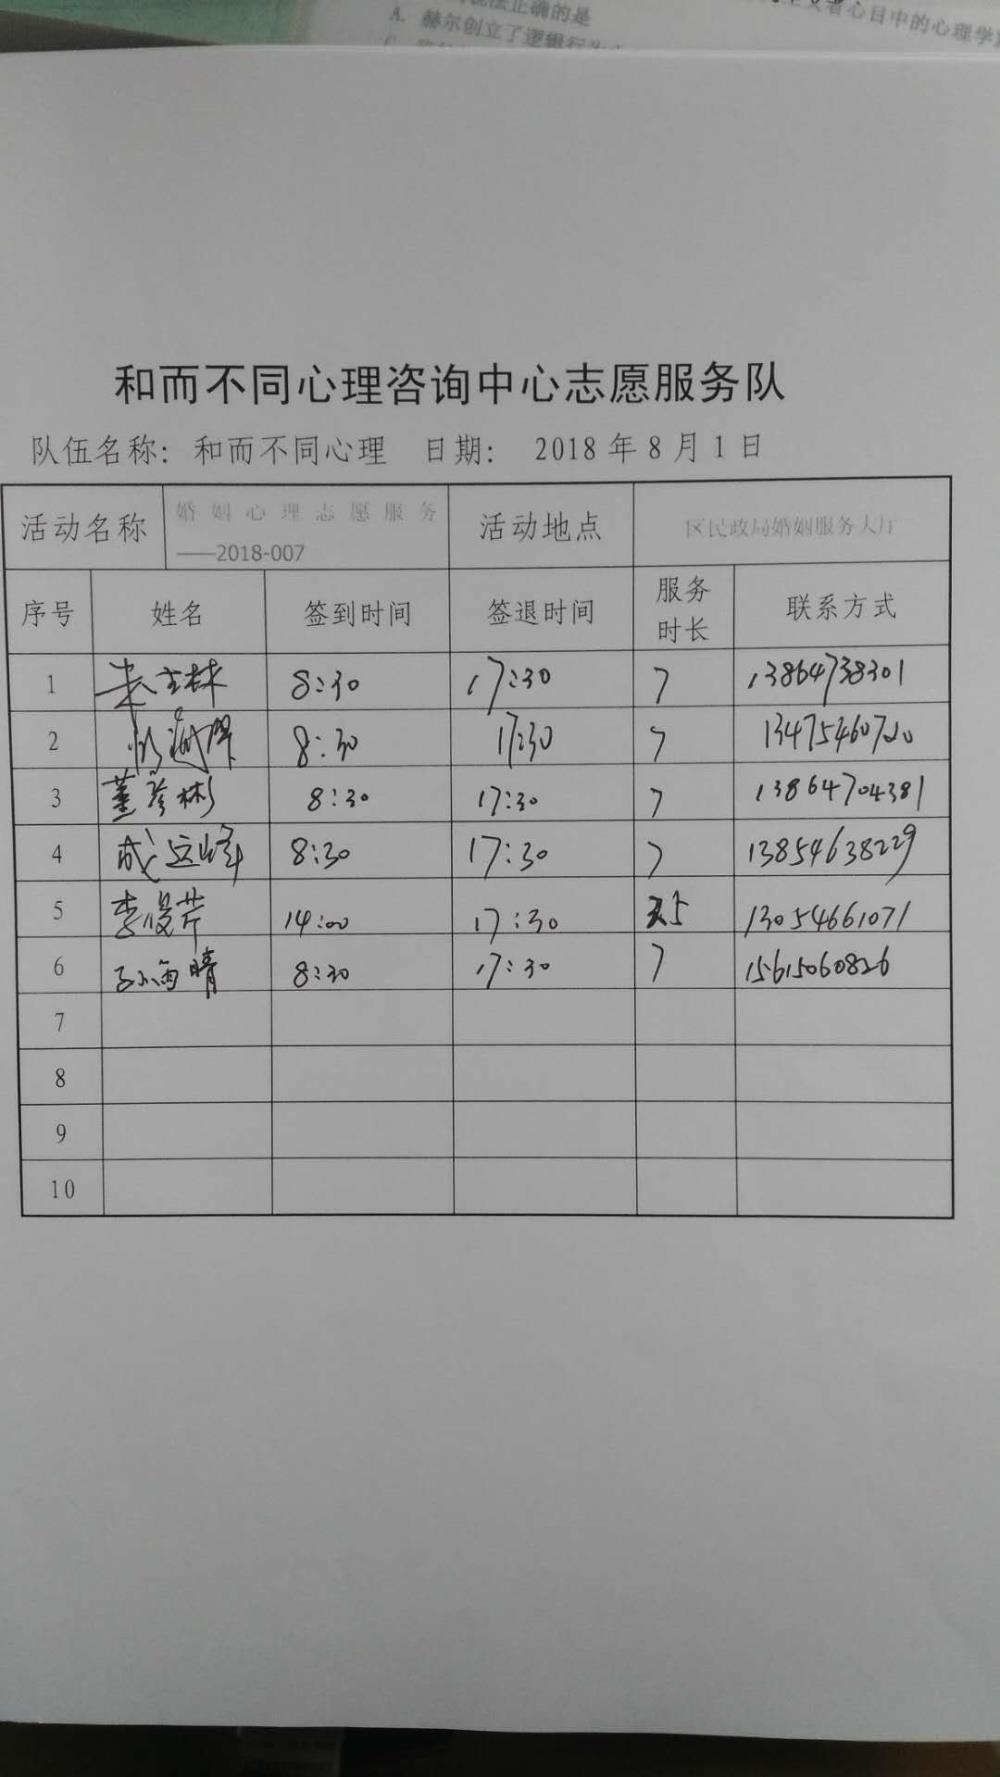 说法正确的是
者心目中的心理学
A. 赫尔创立了逻辑行为
和而不同心理咨询中心志愿服务队
队伍名称: 和而不同心理 日期: 2018年8月1日
活动名称 婚姻心理志愿服务 活动地点 区民政局婚姻服务大厅
——2018-007
序号 姓名 签到时间 签退时间 服务时长 联系方式
1 8:30 17:30 7 13864738301
2 8:30 17:30 7
3 董彦彬 8:30 17:30 7 13864704381
4 成运峰 8:30 17:30 7 13854638229
5 李俊芹 14:00 17:30 13054661071
6 孙雨晴 8:30 17:30 7 15615060826
7
8
9
10